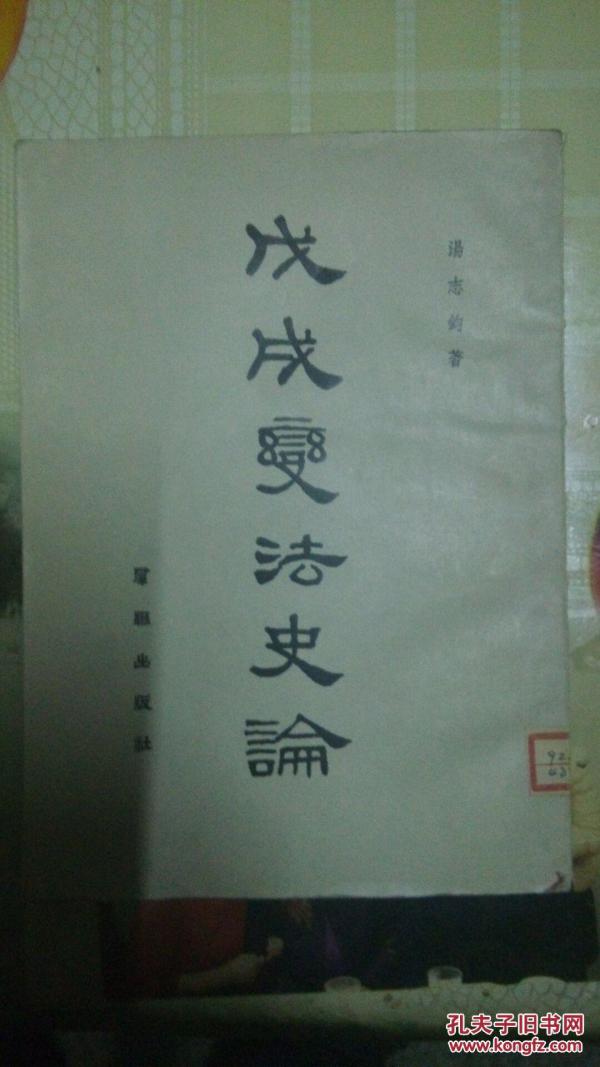 湯志鈞著
戊戌變法史論
羣聯出版社
92
孔夫子旧书网
www.kongfz.com